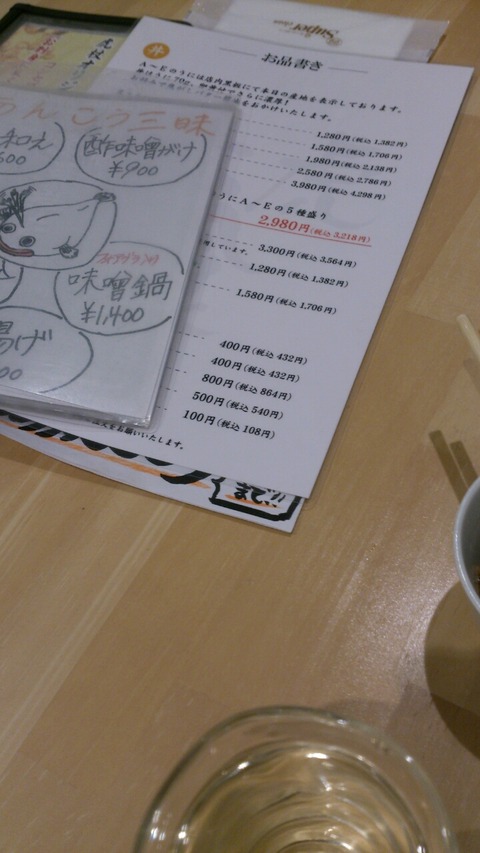 お品書き
丼
A～Eのうには店内黒板にて本日の産地を表示しております。
1,280円(税込 1,382円)
1,580円(税込 1,706円)
1,980円(税込 2,138円)
2,580円(税込 2,786円)
3,980円(税込 4,298円)
うにA～Eの5種盛り
2,980円(税込 3,218円)
3,300円(税込 3,564円)
1,280円(税込 1,382円)
1,580円(税込 1,706円)
400円(税込 432円)
400円(税込 432円)
800円(税込 864円)
500円(税込 540円)
100円(税込 108円)
お願いいたします。
んこう三味
和え
酢味噌がけ
¥900
味噌鍋
¥1,400
揚げ
まで!!